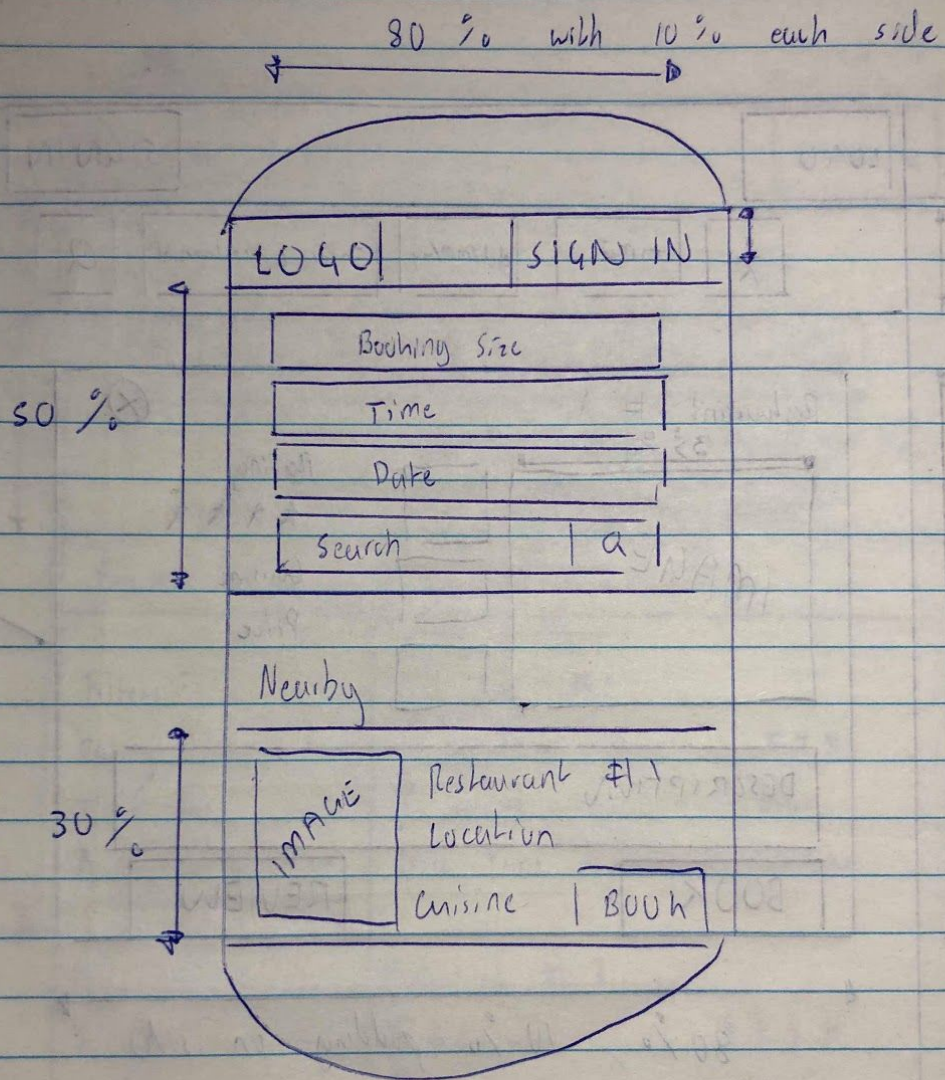 80 % with 10% each side
LOGO SIGN IN
Booking Size
50 %
Time
Date
Search Q
Nearby
Restaurant #1
30 %
IMAGE
Location
Cuisine BOOK